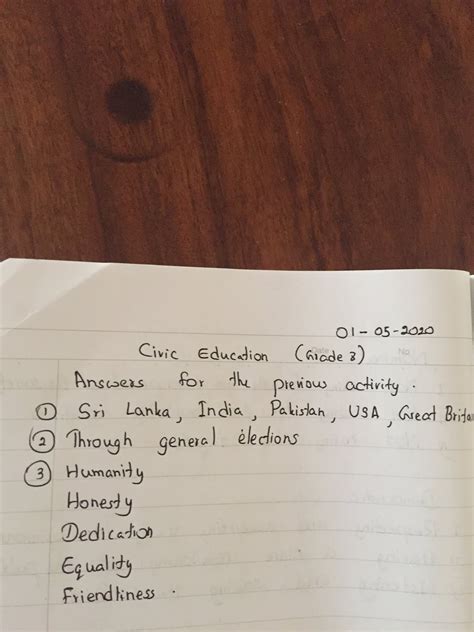 01-05-2020
Civic Education (Grade 3)
Answers for the previous activity.
① Sri Lanka, India, Pakistan, USA, Great Britan
② Through general elections
③ Humanity
Honesty
Dedication
Equality
Friendliness.